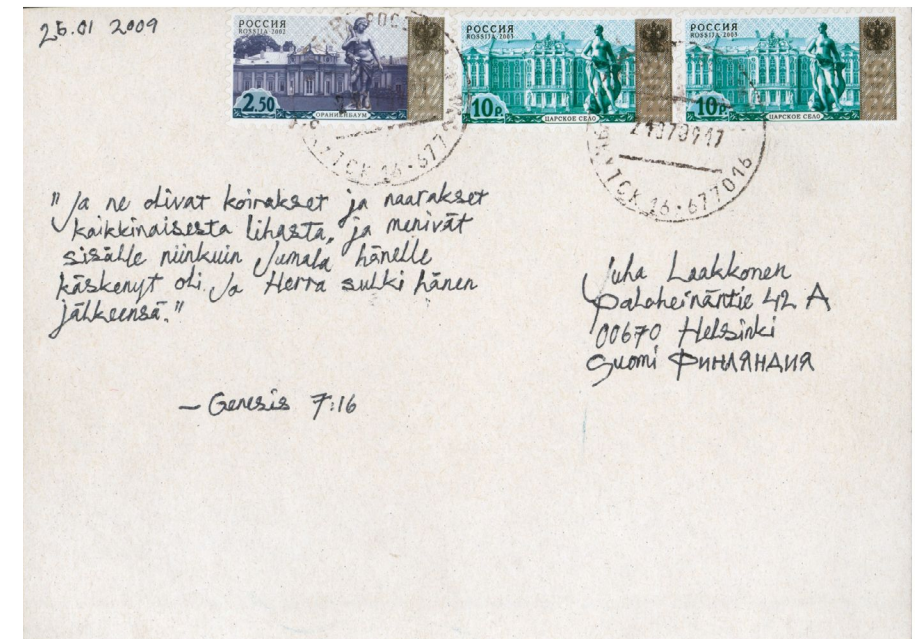 25.01 2009
РОССИЯ
ROSSIJA·2002
2.50
ОРАНИЕНБАУМ
РОССИЯ
ROSSIJA·2003
10р.
ЦАРСКОЕ СЕЛО
РОССИЯ
ROSSIJA·2003
10р.
ЦАРСКОЕ СЕЛО
16·677
ТСК 16·677016
"Ja ne olivat koirakset ja naarakset
kaikkinaisesta lihasta, ja menivät
sisälle niinkuin Jumala hänelle
käskenyt oli. Ja Herra sulki hänen
jälkeensä."
— Genesis 7:16
Juha Laakkonen
Paloheinäntie 42 A
00670 Helsinki
Suomi ФИНЛЯНДИЯ